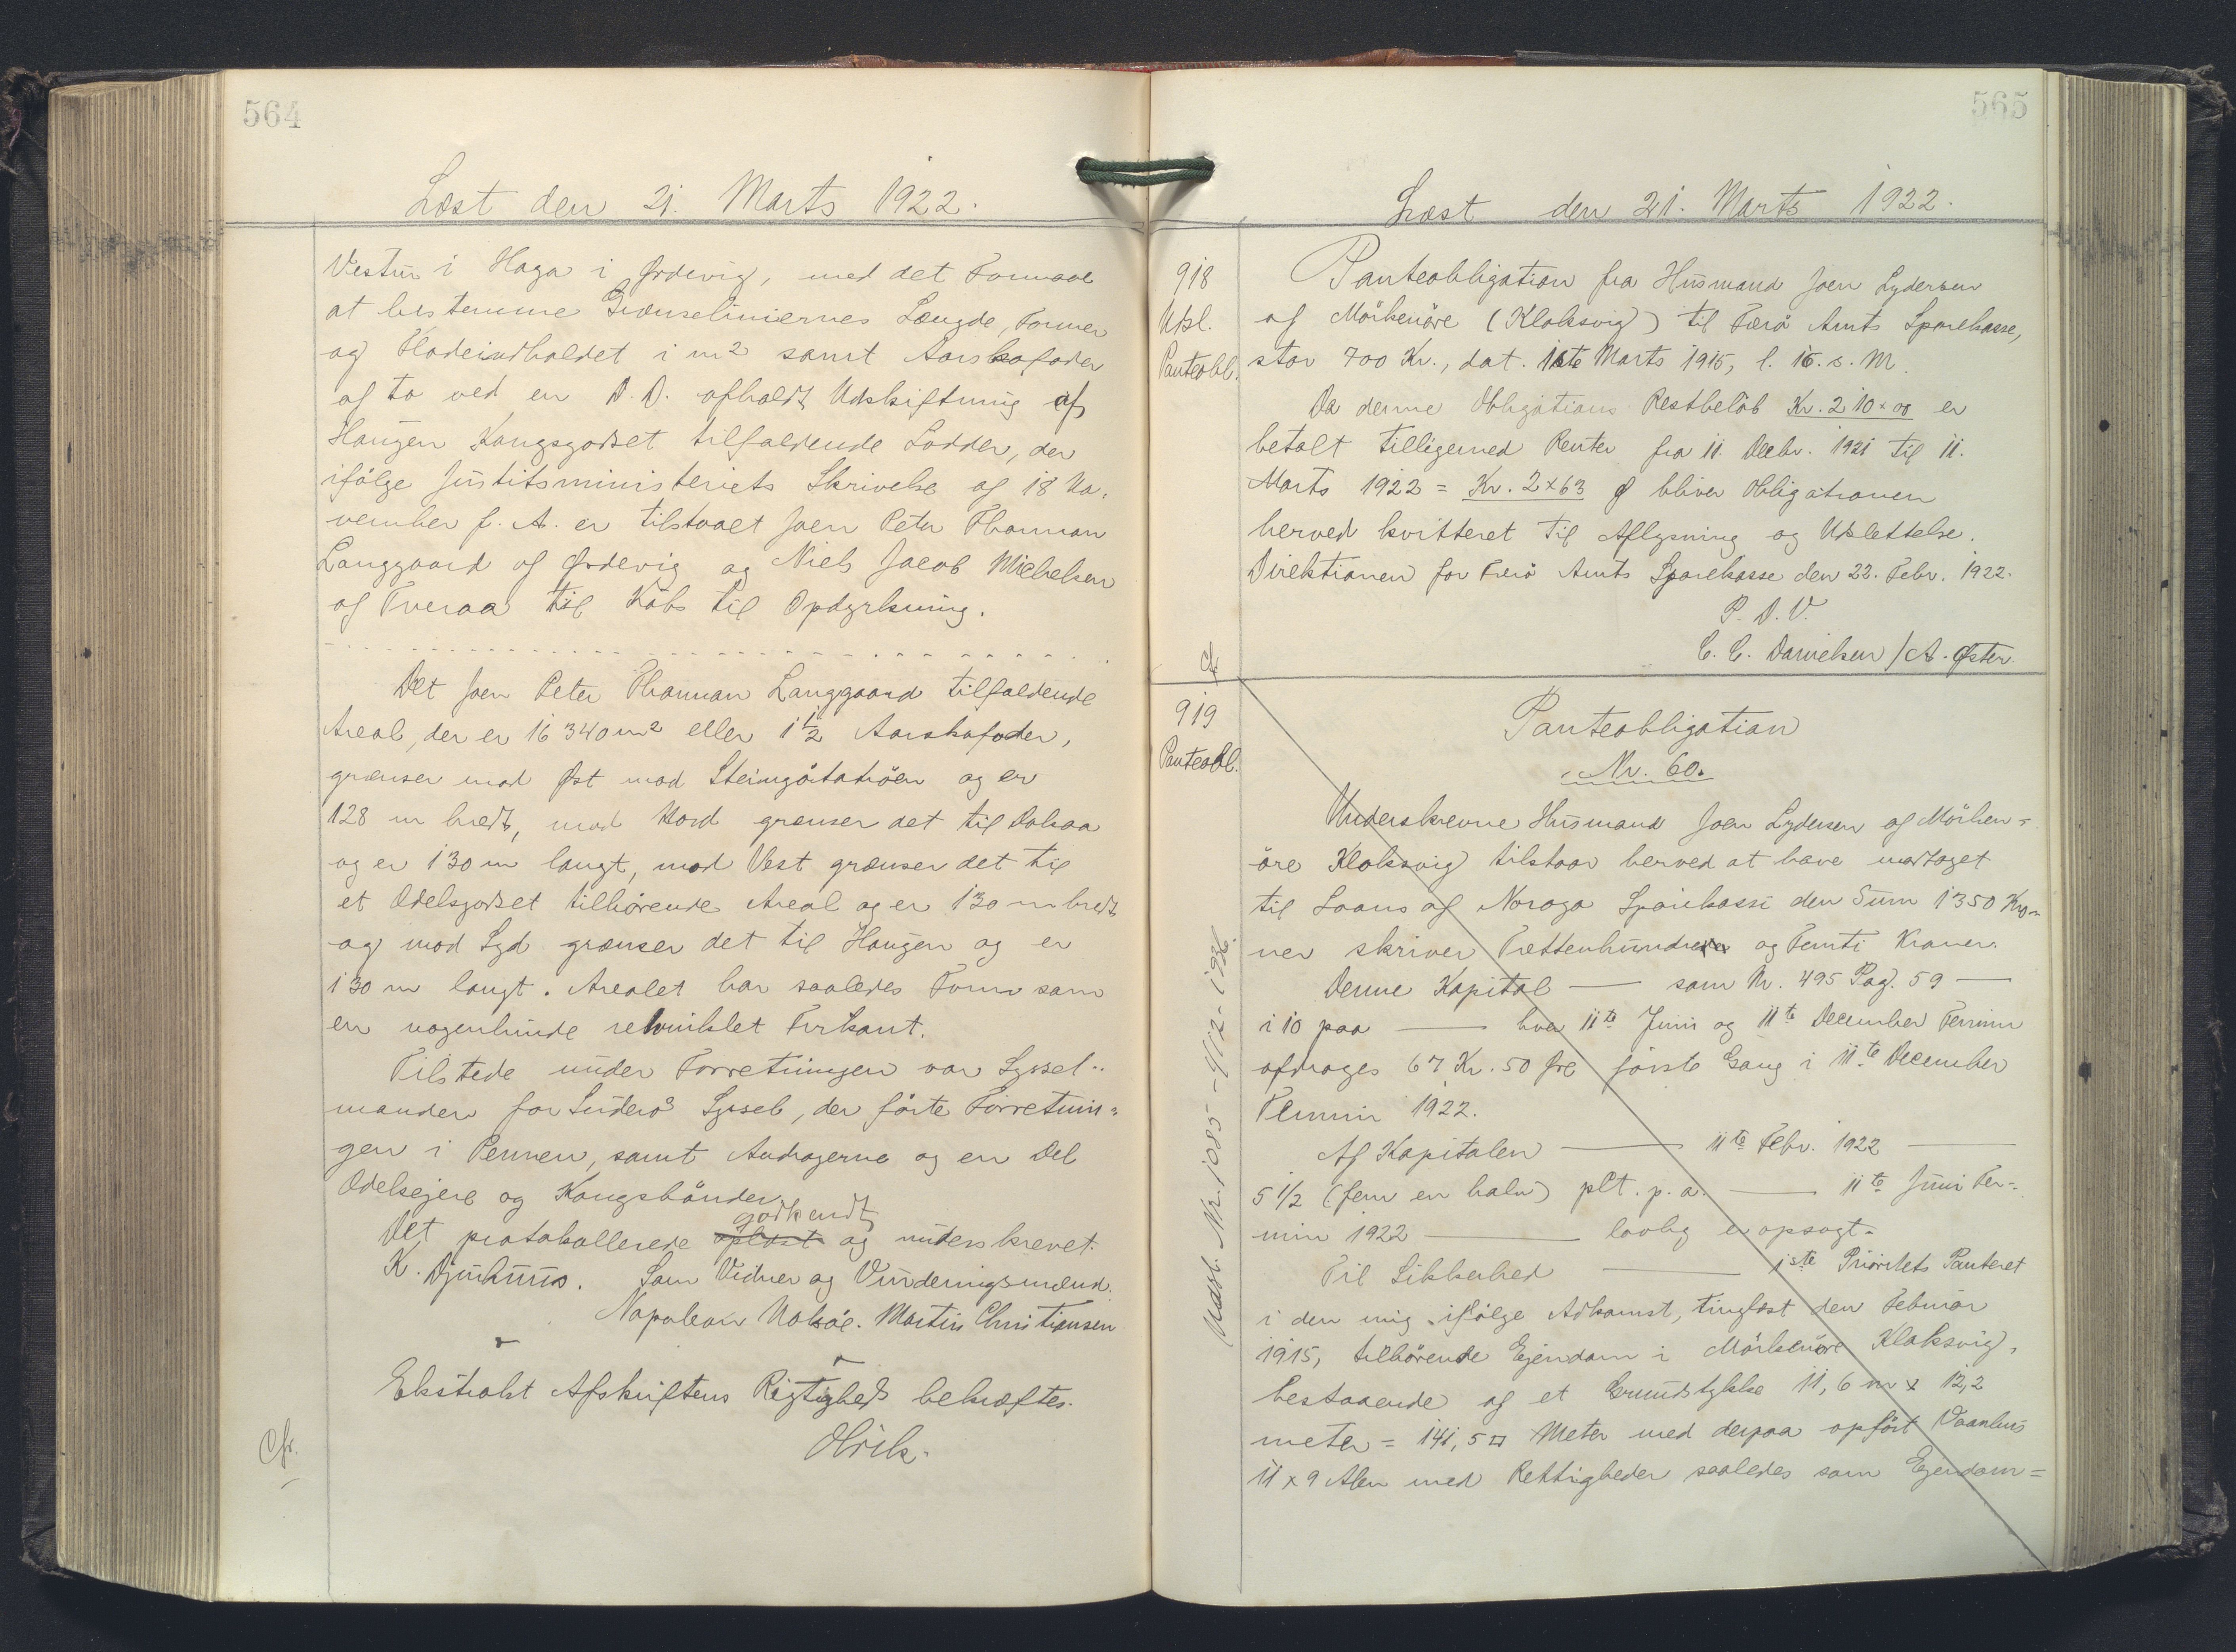 564
Læst den 21. Marts 1922.
Vestur i Haga i Ørdevig, med det Formaal
at bestemme Grænseliniernes Længde, Former
og Fladeindholdet i m2 samt Aarskofoder
af to ved en D.D. afholdt Udskiftning af
Haugen Kongsgodset tilfaldende Lodder, der
ifølge Justitsministeriets Skrivelse af 18 No-
vember f. A. er tilstaaet Joen Peter Thomman
Langgaard af Ørdevig og Niels Jacob Michelsen
af Tveraa til Købs til Opdyrkning.
Det Joen Peter Thomman Langgaard tilfaldende
Areal, der er 16340 m2 eller 1 1/2 Aarskofoder,
grænser mod Øst mod Steingöitatröen og er
128 m bredt, mod Nord grænser det til Dalsaa
og er 130 m langt, mod Vest grænser det til
et Odelsgodset tilhørende Areal og er 130 m bredt
og mod Syd grænser det til Haugen og er
130 m langt. Arealet har saaledes Form som
en nogenlunde retvinklet Firkant.
Tilstede under Forretningen var Syssel-
manden for Suderø Syssel, der førte Forretnin-
gen i Pennen, samt Andragerne og en Del
Odelsejere og Kongsbønder.
godkendt
Det protokollerede oplæst og underskrevet.
K. Djurhuus. Som Vidner og Vurderingsmænd.
Napoleon Nolsøe. Martin Christiansen
Ekstrakt Afskriftens Rigtighed bekræftes.
Cfr.
565
Læst den 21. Marts 1922.
918
Udsl.
Panteobl.
Panteobligation fra Husmand Joen Lydersen
af Mörkenöre (Klaksvig) til Færø Amts Sparekasse,
stor 700 Kr., dat. 11te Marts 1915, l. 16. s. M.
Da denne Obligations Restbeløb Kr. 210 x 00 er
betalt tilligemed Renter fra 11. Decbr. 1921 til 11.
Marts 1922 = Kr. 2 x 63 Ø bliver Obligationen
herved kvitteret til Aflysning og Udslettelse.
Direktionen for Færø Amts Sparekasse den 22. Febr. 1922.
P. D. V.
C. C. Danielsen / A. Øster.
Cfr
919
Panteobl.
Panteobligation
Nr. 60.
Underskrevne Husmand Joen Lydersen af Mörken-
öre Klaksvig tilstaar herved at have modtaget
til Laans af Noroya Sparikassi den Sum 1350 Kro-
ner skriver Trettenhundrede og Femti Kroner.
Denne Kapital — som Nr. 495 Pag. 59 —
i 10 paa — hver 11te Juni og 11te December Termin
afdrages 67 Kr. 50 Øre første Gang i 11te December
Termin 1922.
Af Kapitalen — 11te Febr. 1922 —
5 1/2 (fem en halv) pCt. p. a. — 11te Juni Ter-
min 1922 — lovlig er opsagt.
Til Sikkerhed — 1ste Prioritets Panteret
i den mig ifølge Adkomst, tinglæst den Februar
1915, tilhørende Ejendom i Mörkenöre Klaksvig,
bestaaende af et Grundstykke 11,6 m x 12,2
meter = 141,5 □ Meter med derpaa opført Vaanhus
11 x 9 Alen med Rettigheder saaledes som Ejendom=
Udsl. Nr. 1085 - 9/12 - 1936.